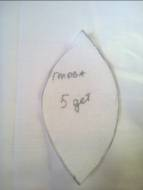 голова
5 дет